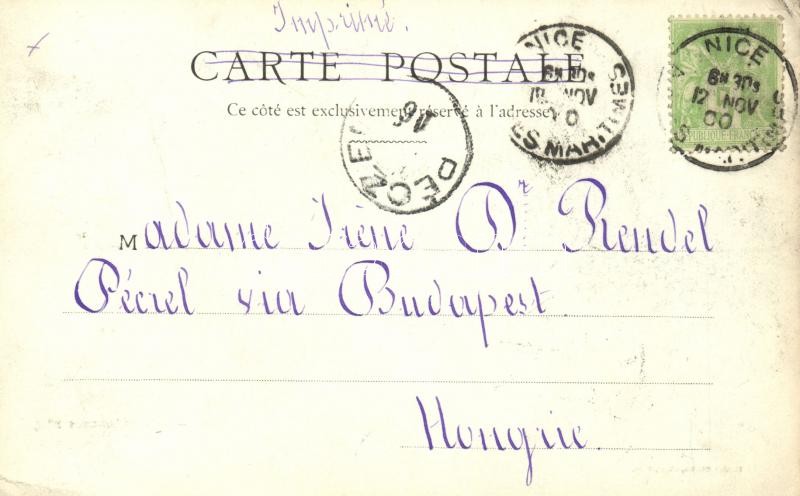 Imprimé.
CARTE POSTALE
Ce côté est exclusivement réservé à l'adresse
NICE
12 NOV
ES MARITIMES
NICE
6H 30S
12 NOV
00
RÉPUBLIQUE FRANÇ
PÉCZEL
Madame Irène Dr Rendel
Pécrel via Budapest.
Hongrie.